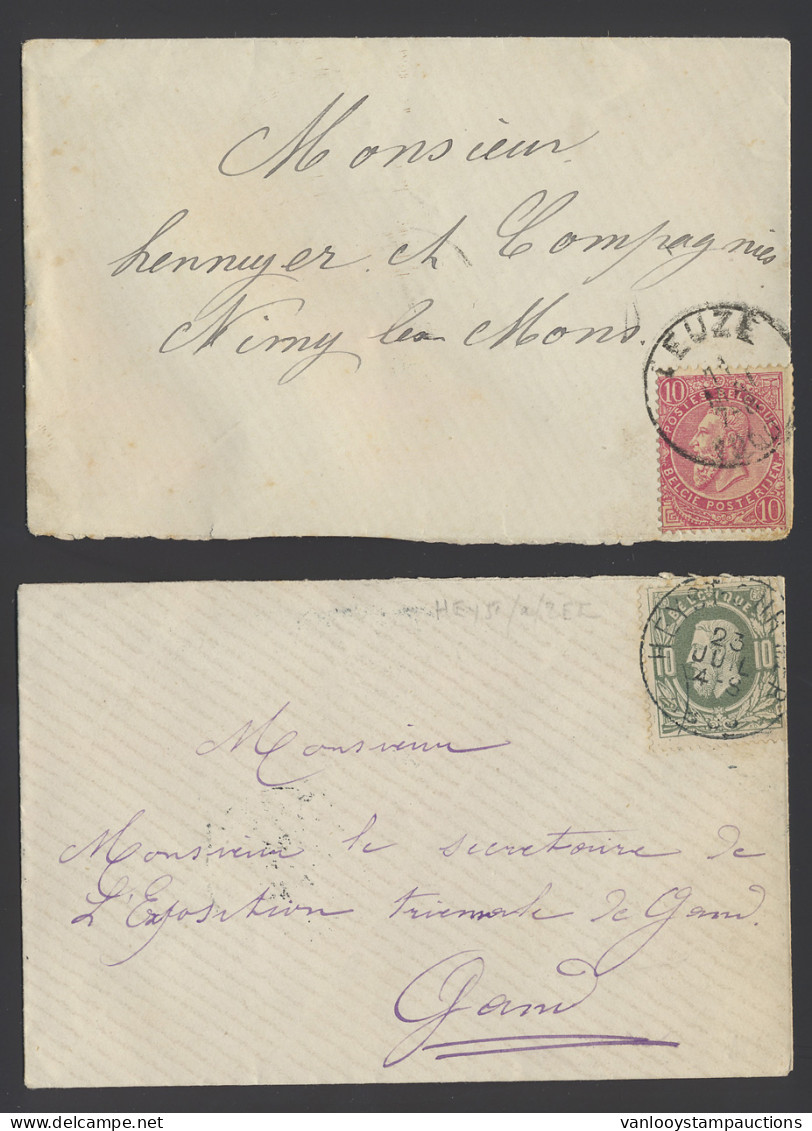 Monsieur
hennuyer et Compagnies
Nimy les Mons.
LEUZE
10 10
POSTES BELGIQUE
BELGIE POSTERIJEN
10
HEYST/a/ZEE
BELGIQUE
10 10
HEYST-SUR-MER
23
JUIL
4-S
Monsieur
Monsieur le secretaire de
L'Exposition triennale de Gand.
Gand
vanlooystampauctions